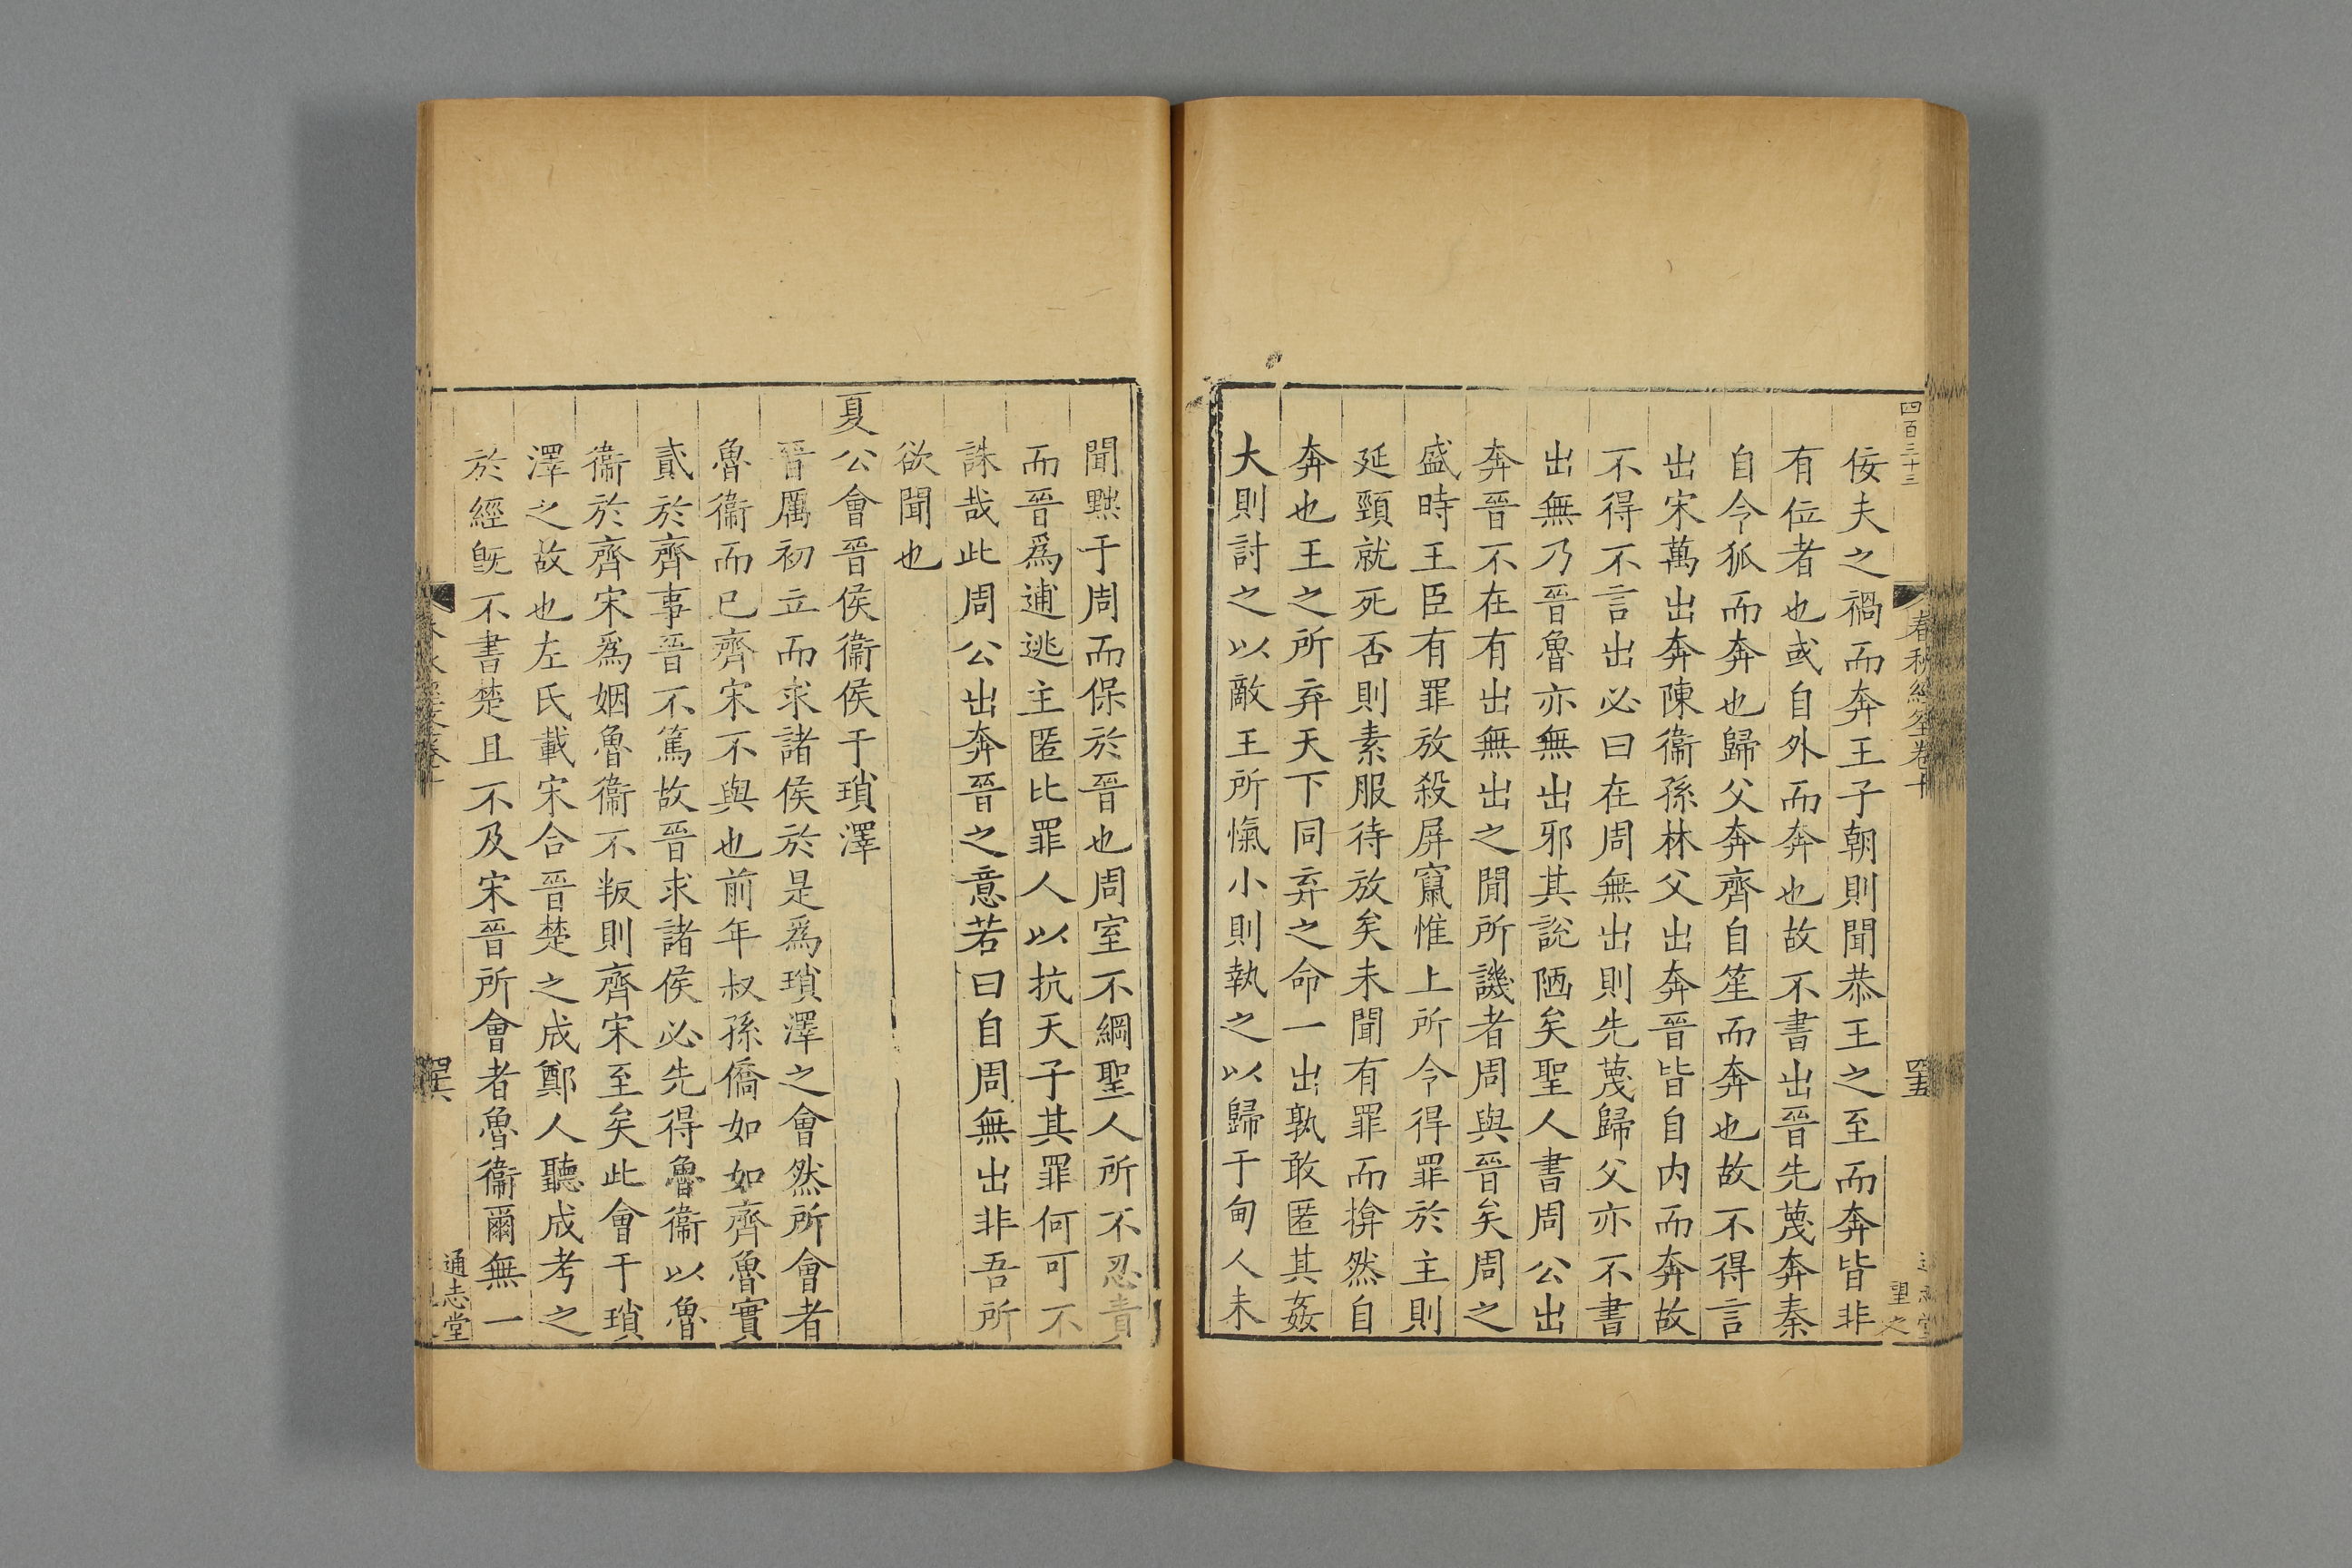 四百二十三
春秋經筌卷十
罕五
望之
佞夫之禍而奔王子朝則聞恭王之至而奔皆非
有位者也或自外而奔也故不書出晉先蔑奔秦
自令狐而奔也歸父奔齊自笙而奔也故不得言
出宋萬出奔陳衞孫林父出奔晉皆自内而奔故
不得不言出必曰在周無出則先蔑歸父亦不書
出無乃晉魯亦無出邪其說陋矣聖人書周公出
奔晉不在有出無出之閒所譏者周與晉矣周之
盛時王臣有罪放殺屏竄惟上所令得罪於主則
延頸就死否則素服待放矣未聞有罪而揜然自
奔也王之所弃天下同弃之命一出孰敢匿其姦
大則討之以敵王所愾小則執之以歸于甸人未
聞黙于周而保於晉也周室不綱聖人所不忍責
而晉爲逋逃主匿比罪人以抗天子其罪何可不
誅哉此周公出奔晉之意若曰自周無出非吾所
欲聞也
夏公會晉侯衞侯于瑣澤
晉厲初立而求諸侯於是爲瑣澤之會然所會者
魯衞而已齊宋不與也前年叔孫僑如如齊魯實
貳於齊事晉不篤故晉求諸侯必先得魯衞以魯
衞於齊宋爲姻魯衞不叛則齊宋至矣此會于瑣
澤之故也左氏載宋合晉楚之成鄭人聽成考之
於經旣不書楚且不及宋晉所會者魯衞爾無一
通志堂